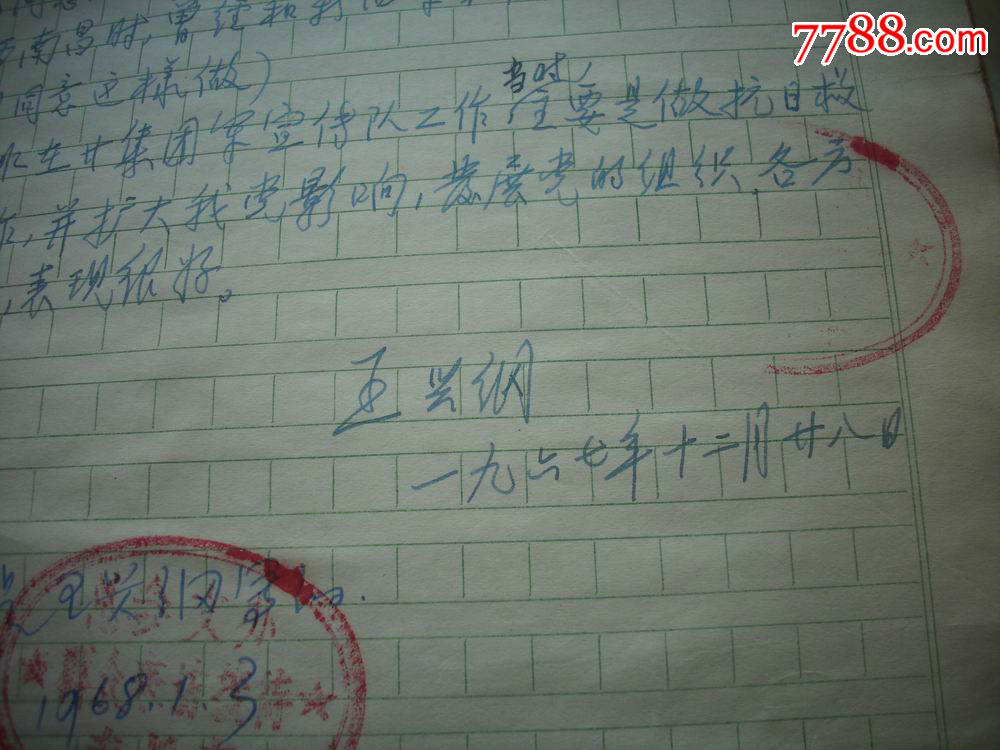 7788.com
南昌时,曾经和
同意这樣做)
在廿集团軍宣传队工作当时,主要是做抗日救
,并扩大我党影响,发展党的组织,各方
,表现很好。
王兴纲
一九六七年十二月廿八日
王兴纲写的.
1968.1.3